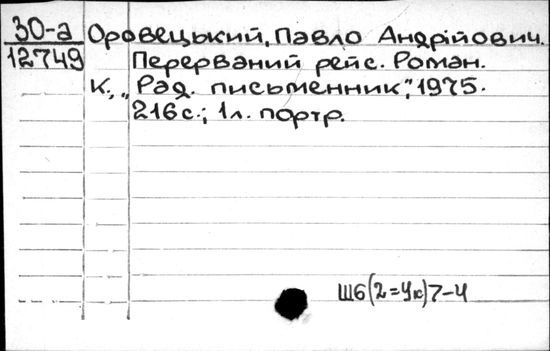 30-а Оровецький, Павло Андрійович.
12749 Перерваний рейс. Роман.
К., „Рад. письменник", 1975.
216с.; 1л. портр.
Ш6(2=Ук)7-4